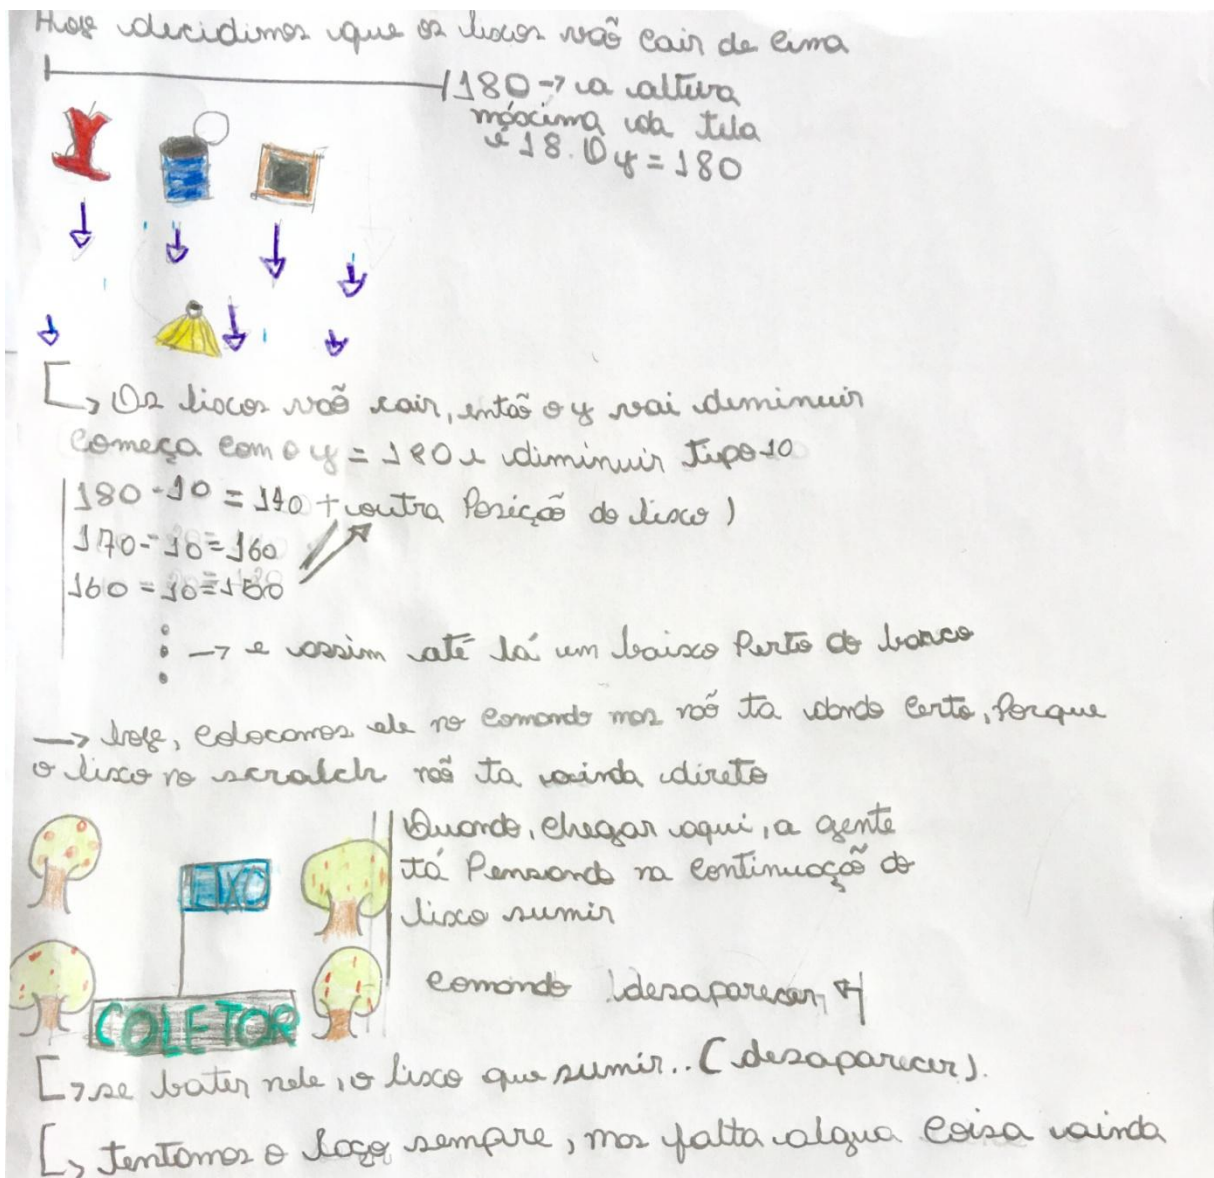 Hoje decidimos que os lixos vaõ cair de cima
180 → a altura
máxima da tela
é 18.0 y = 180
↳ Os lixos vaõ cair, entaõ o y vai deminuir
começa com o y = 180 e diminuir tipo 10
180 - 10 = 170 + outra Posiçaõ do lixo )
170 - 10 = 160
160 = 10 = 150
→ e assim até lá um baixo Perto do barco
→ hoje, colocamos ele no comando mas naõ ta dando certo, Porque
o lixo no scratch naõ ta ainda direto
Quando, chegar aqui, a gente
tá Pensando na continuaçaõ do
lixo sumir
LIXO
comando desaparecer
COLETOR
↳ se bater nele, o lixo que sumir.. ( desaparecer).
↳ tentamos o laço sempre, mas falta algua coisa ainda